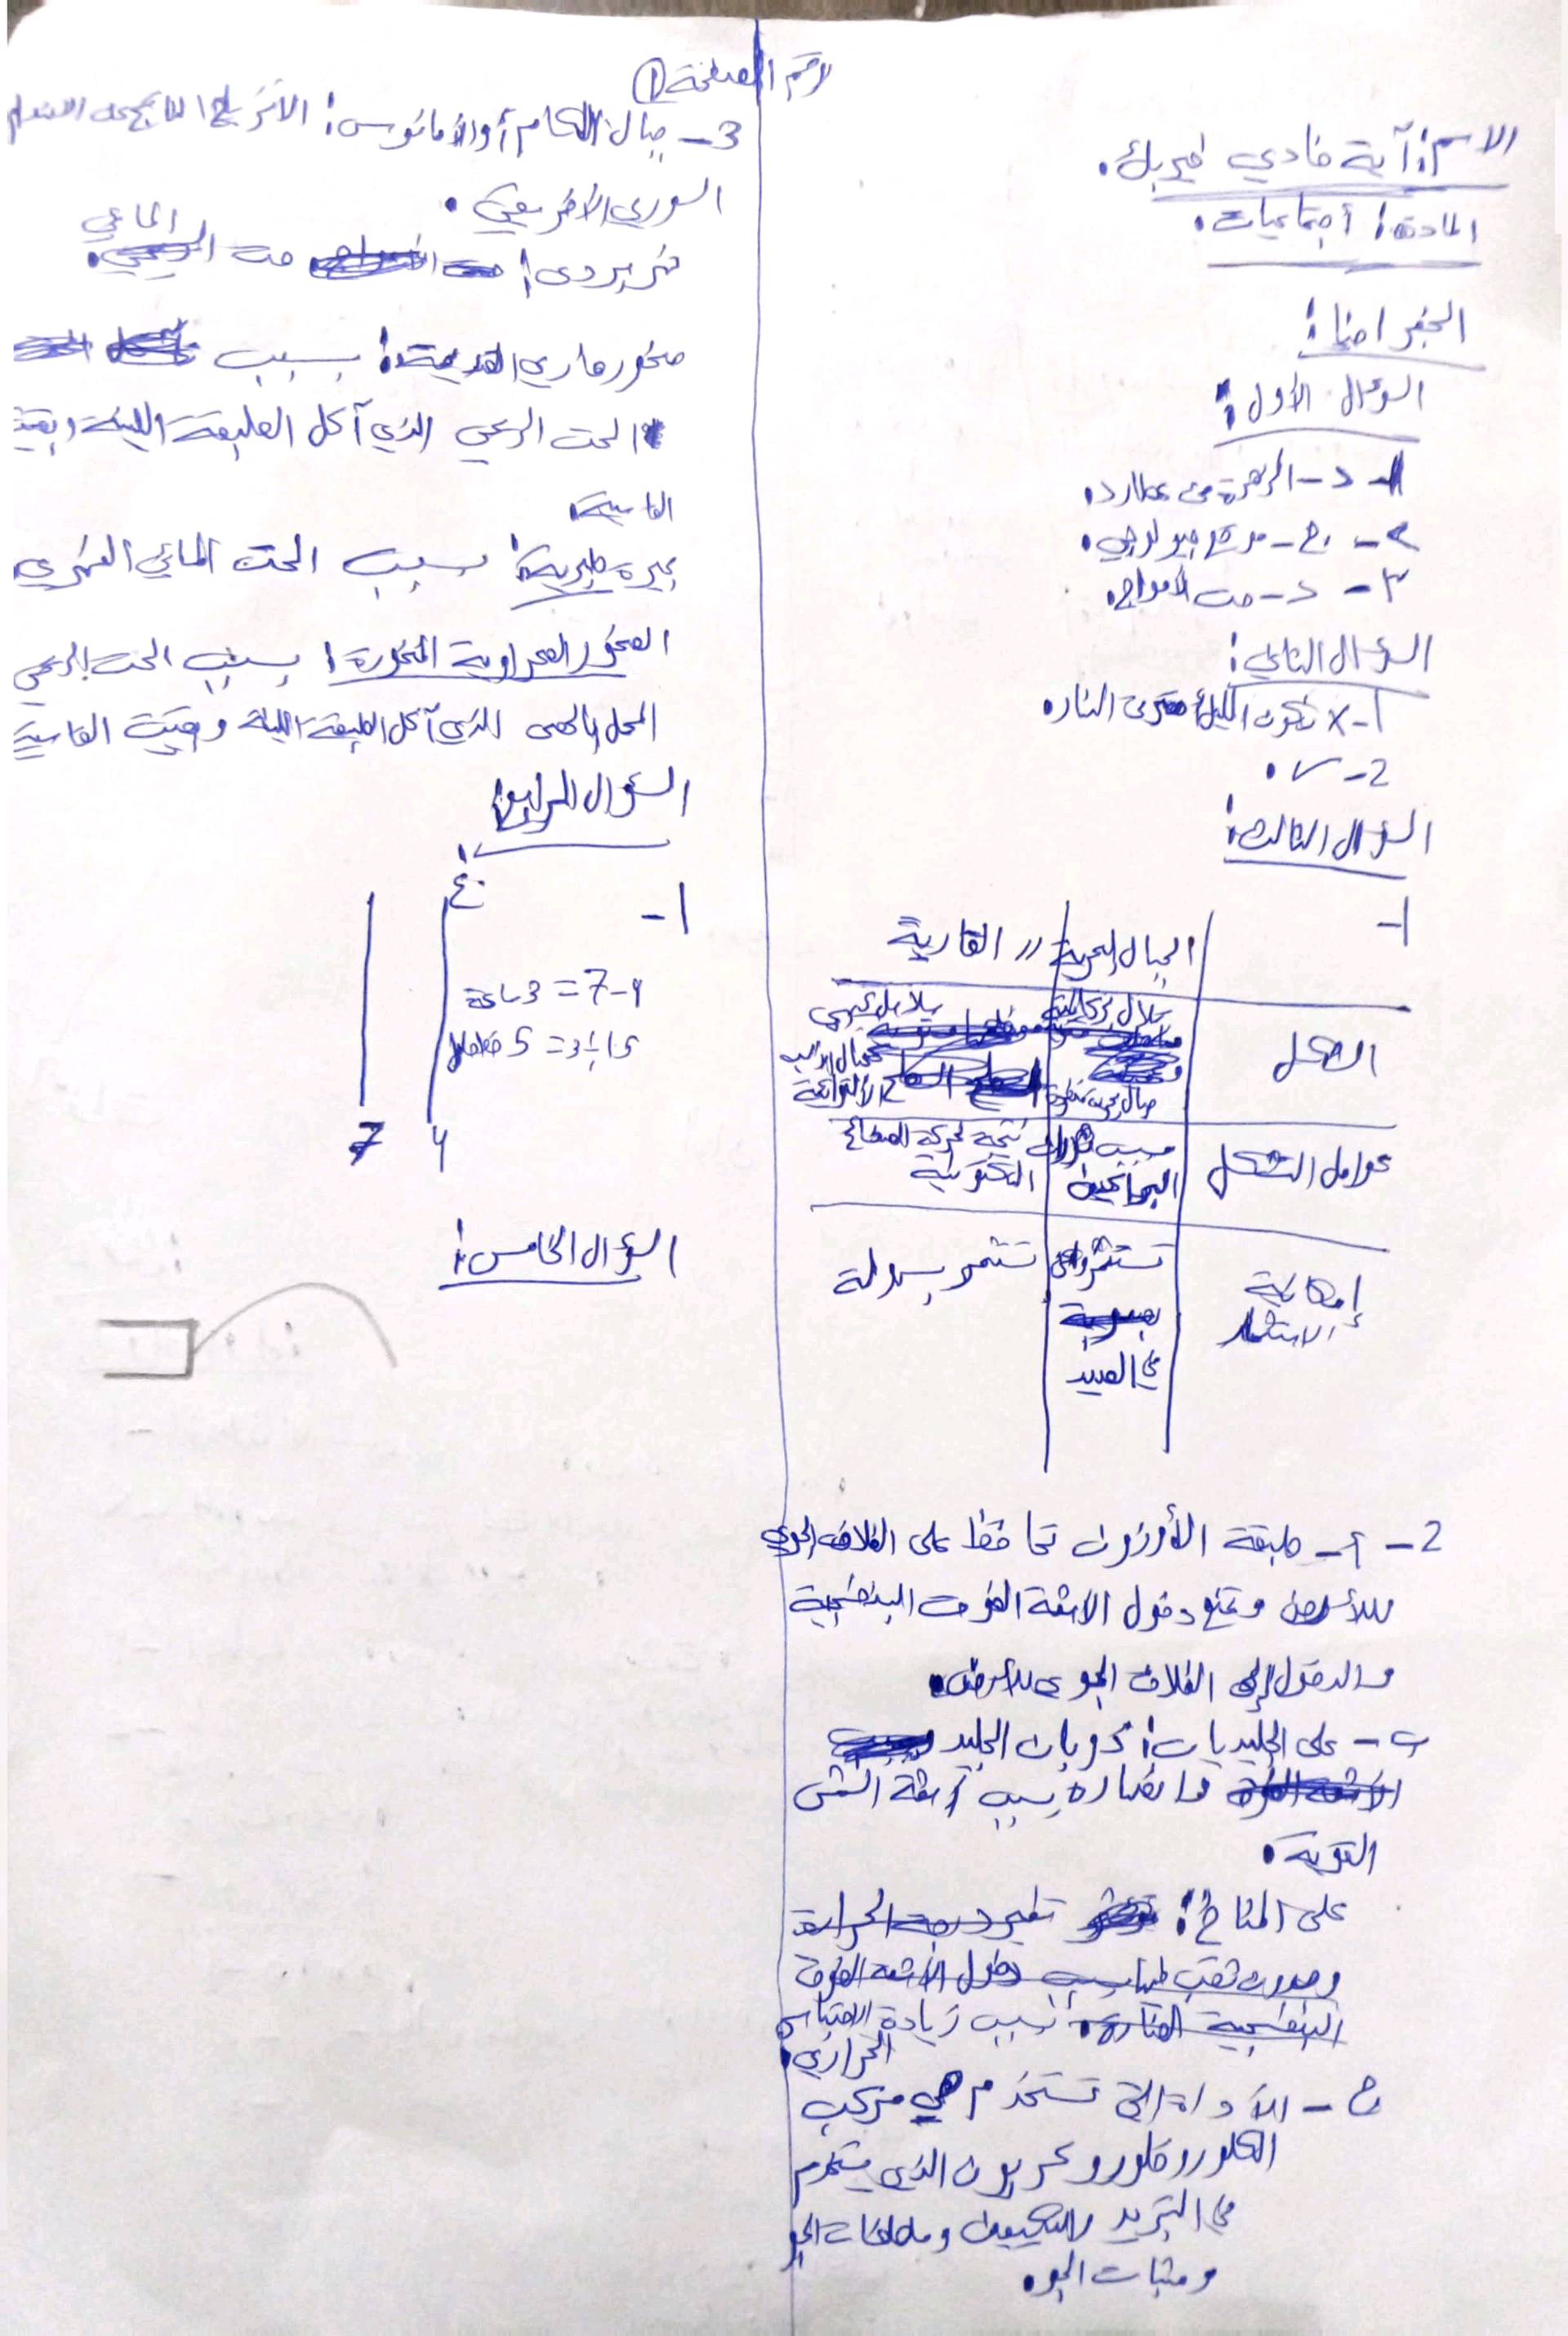 رقم الصفحة ①
الاسم: آية فادي خير بك.
المادة: اجتماعيات.
الجغرافيا:
السؤال الأول:
1- د- الزهرة من عطارد.
2- ج- مرتع جيولوجي.
3- د- حت الأمواج.
السؤال الثاني:
1- X تكون الليل النار.
2- ✓.
السؤال الثالث:
1-
الجبال البحرية // القارية
الشكل
تلال بركانية
سلاسل
جبال بحرية جبال الألب
الالتوائية
عوامل التشكل
بسبب البراكين
نتيجة لحركة الصفائح
التكتونية
إمكانية
الاستثمار
تستثمر
في الصيد
تستثمر بسهولة
2- أ- طبقة الأوزون تحافظ على الغلاف الجوي
للأرض وتمنع دخول الاشعة الفوق البنفسجية
والدخول إلى الغلاف الجوي للأرض.
ب- على الجليديات: ذوبان الجليد
وانصهاره بسبب أشعة الشمس
القوية.
على المناخ: تغير درجة الحرارة
وحدوث ثقب بسبب دخول الأشعة الفوق
البنفسجية الضارة. بسبب زيادة الاحتباس
الحراري.
ج- الأداة التي تستخدم هي مركب
الكلور وفلور وكربون الذي يستخدم
في التبريد والتكييف وملطفات الجو
ومثبات الجو.
3- جبال اللكام أو الأمانوس: الانزياح الناتج عن الانهدام
السوري الأفريقي.
نهر بردى: حت المائي
صخور ماري القديمة: بسبب
الحت الريحي الذي آكل الطبقة اللينة وبقيت
القاسية.
بحيرة طبرية: بسبب الحت المائي النهري
الصخور الصحراوية المنخورة: بسبب الحت الريحي
المحمل بالحصى الذي آكل الطبقة اللينة وبقيت القاسية
السؤال الرابع:
1-
غ
7-4 = 3 ساعة
15÷3 = 5
7 4
السؤال الخامس: